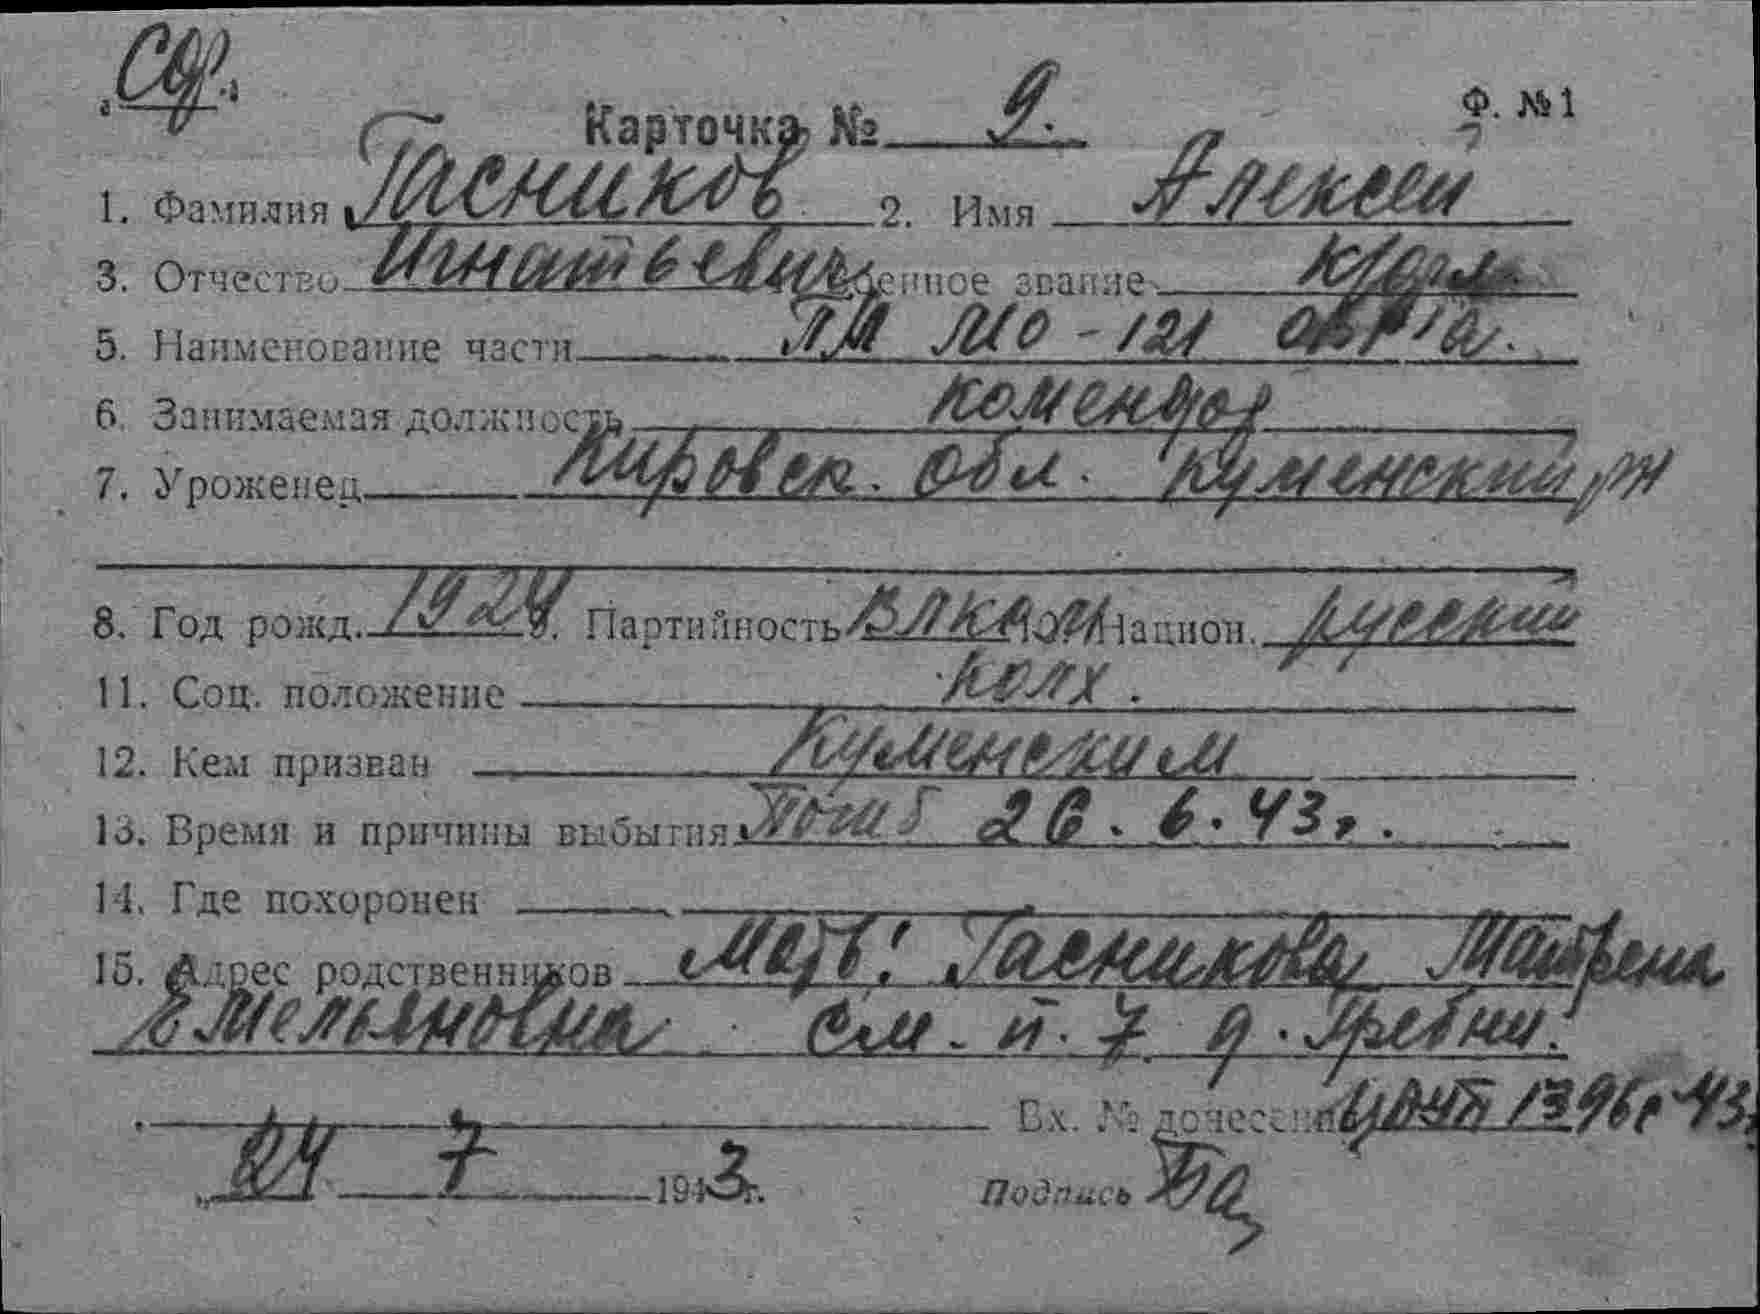 СФ.
Карточка № 9. Ф. №1
1. Фамилия Гасников 2. Имя Алексей
3. Отчество Игнатьевич военное звание к/фл.
5. Наименование части МО-121 ОВР'а.
6. Занимаемая должность комендор
7. Уроженец Кировск. обл. Куменский рн
8. Год рожд. 1924 9. Партийность ВЛКСМ Национ. русский
11. Соц. положение колх.
12. Кем призван Куменским
13. Время и причины выбытия Погиб 26.6.43г.
14. Где похоронен
15. Адрес родственников Мать: Гасникова Матрена
Емельяновна см. п. 7 д. Гребни.
Вх. № донесения 1396с 43
„24 7 1943г. Подпись